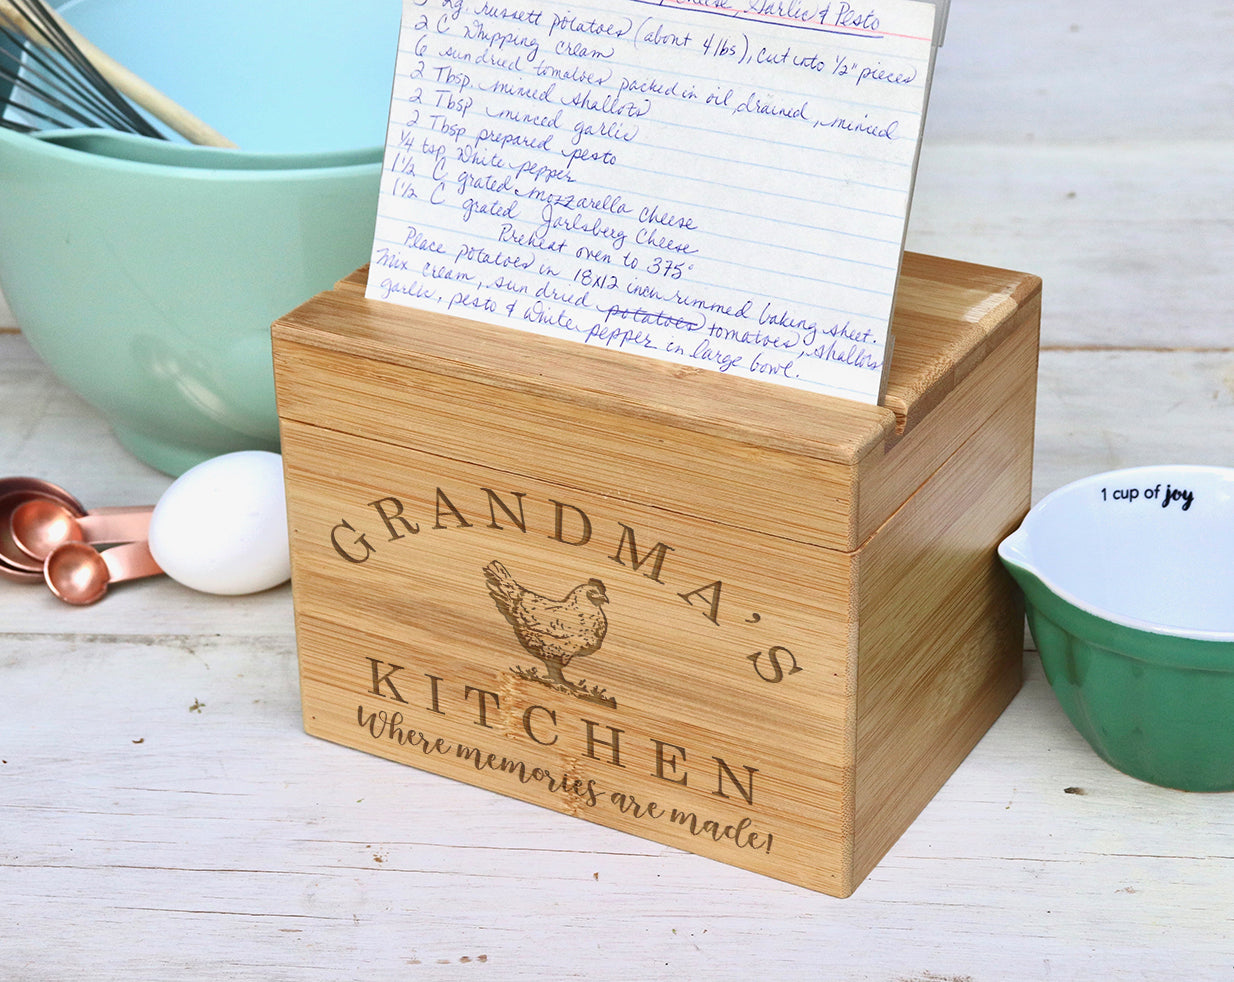 Cheese, Garlic & Pesto
lg. russett potatoes (about 4 lbs), cut into 1/2" pieces
2 C Whipping cream
6 sun dried tomatoes packed in oil, drained, minced
2 Tbsp. minced shallots
2 Tbsp minced garlic
2 Tbsp prepared pesto
1/4 tsp White pepper
1 1/2 C grated mozzarella cheese
1 1/2 C grated Jarlsberg Cheese
Preheat oven to 375°
Place potatoes in 18x12 inch rimmed baking sheet.
Mix cream, sun dried potatoes tomatoes, shallots
garlic, pesto & White pepper in large bowl.
GRANDMA'S
KITCHEN
Where memories are made!
1 cup of joy